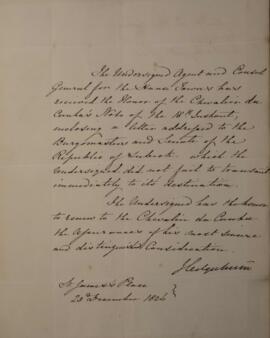 The Undersigned Agent and Consul
General for the Hanse Towns has
received the Honor of the Chevalier da
Cunha's Note of the 18th Instant,
enclosing a letter addressed to the
Burgomasters and Senate of the
Republic of Lubeck, which the
Undersigned did not fail to transmit
immediately to its destination.
The Undersigned has the honor
to renew to the Chevalier da Cunha
the Assurances of his most sincere
and distinguished Consideration.
St James's Place
20th December 1824